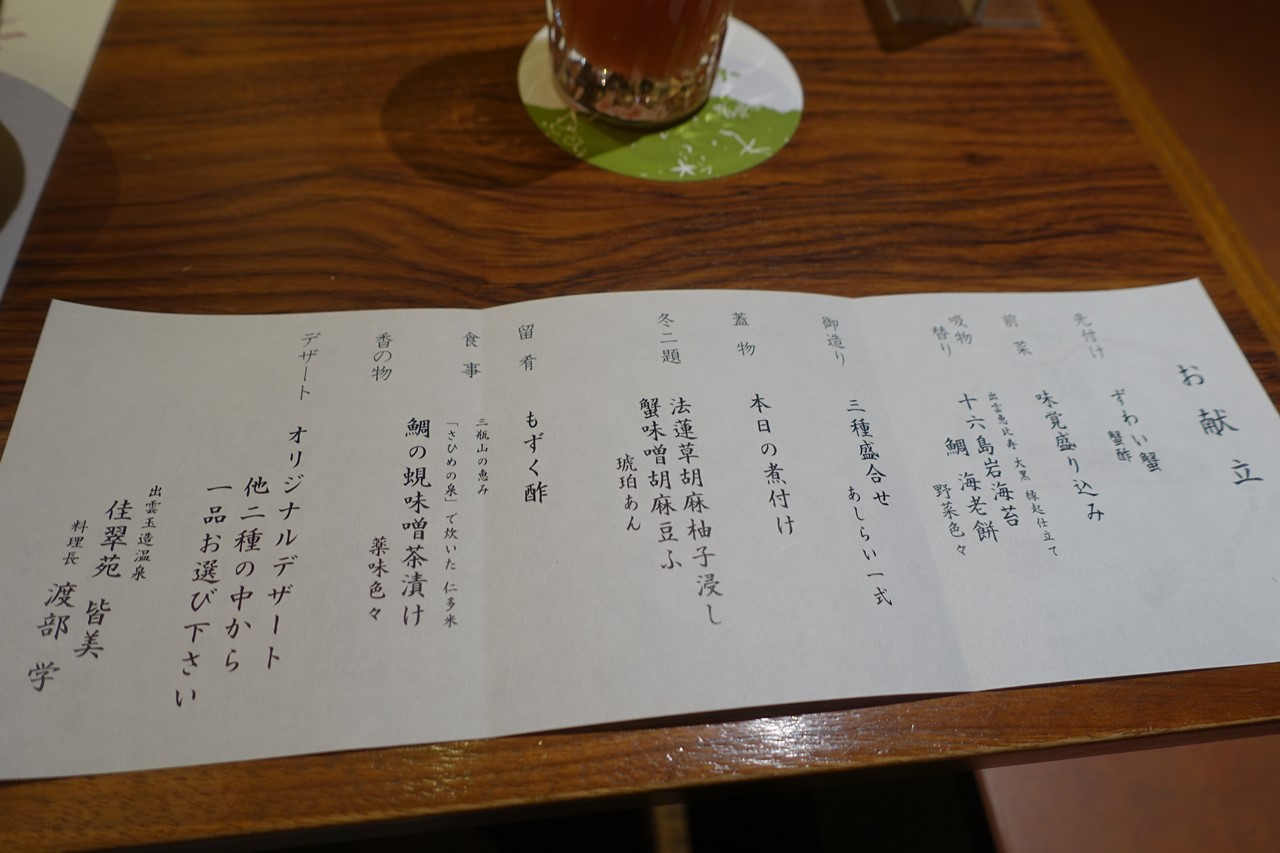 お献立
先付け
ずわい蟹
蟹酢
前菜
味覚盛り込み
出雲恵比寿 大黒 縁起仕立て
吸物
替り
十六島岩海苔
鯛 海老餅
野菜色々
御造り
三種盛合せ
あしらい一式
蓋物
本日の煮付け
冬二題
法蓮草胡麻柚子浸し
蟹味噌胡麻豆ふ
琥珀あん
留肴
もずく酢
食事
三瓶山の恵み
「さひめの泉」で炊いた 仁多米
鯛の蜆味噌茶漬け
薬味色々
香の物
デザート
オリジナルデザート
他二種の中から
一品お選び下さい
出雲玉造温泉
佳翠苑 皆美
料理長 渡部 学